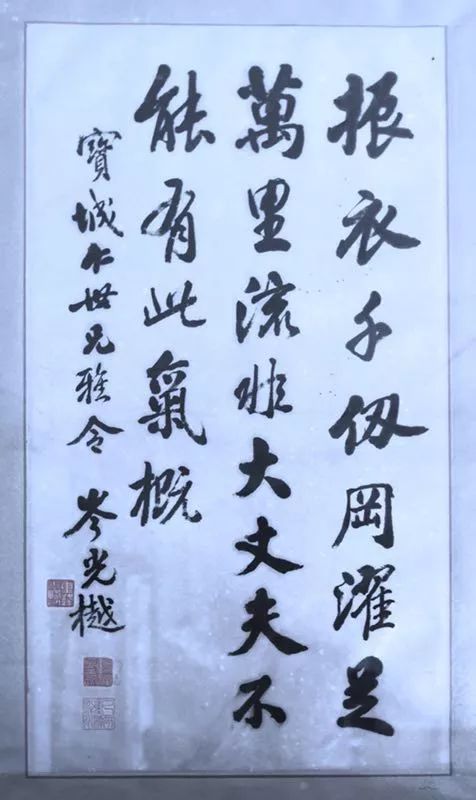 振衣千仭岡濯足
萬里流非大丈夫不
能有此氣概
寶城仁世兄雅令 岑光樾